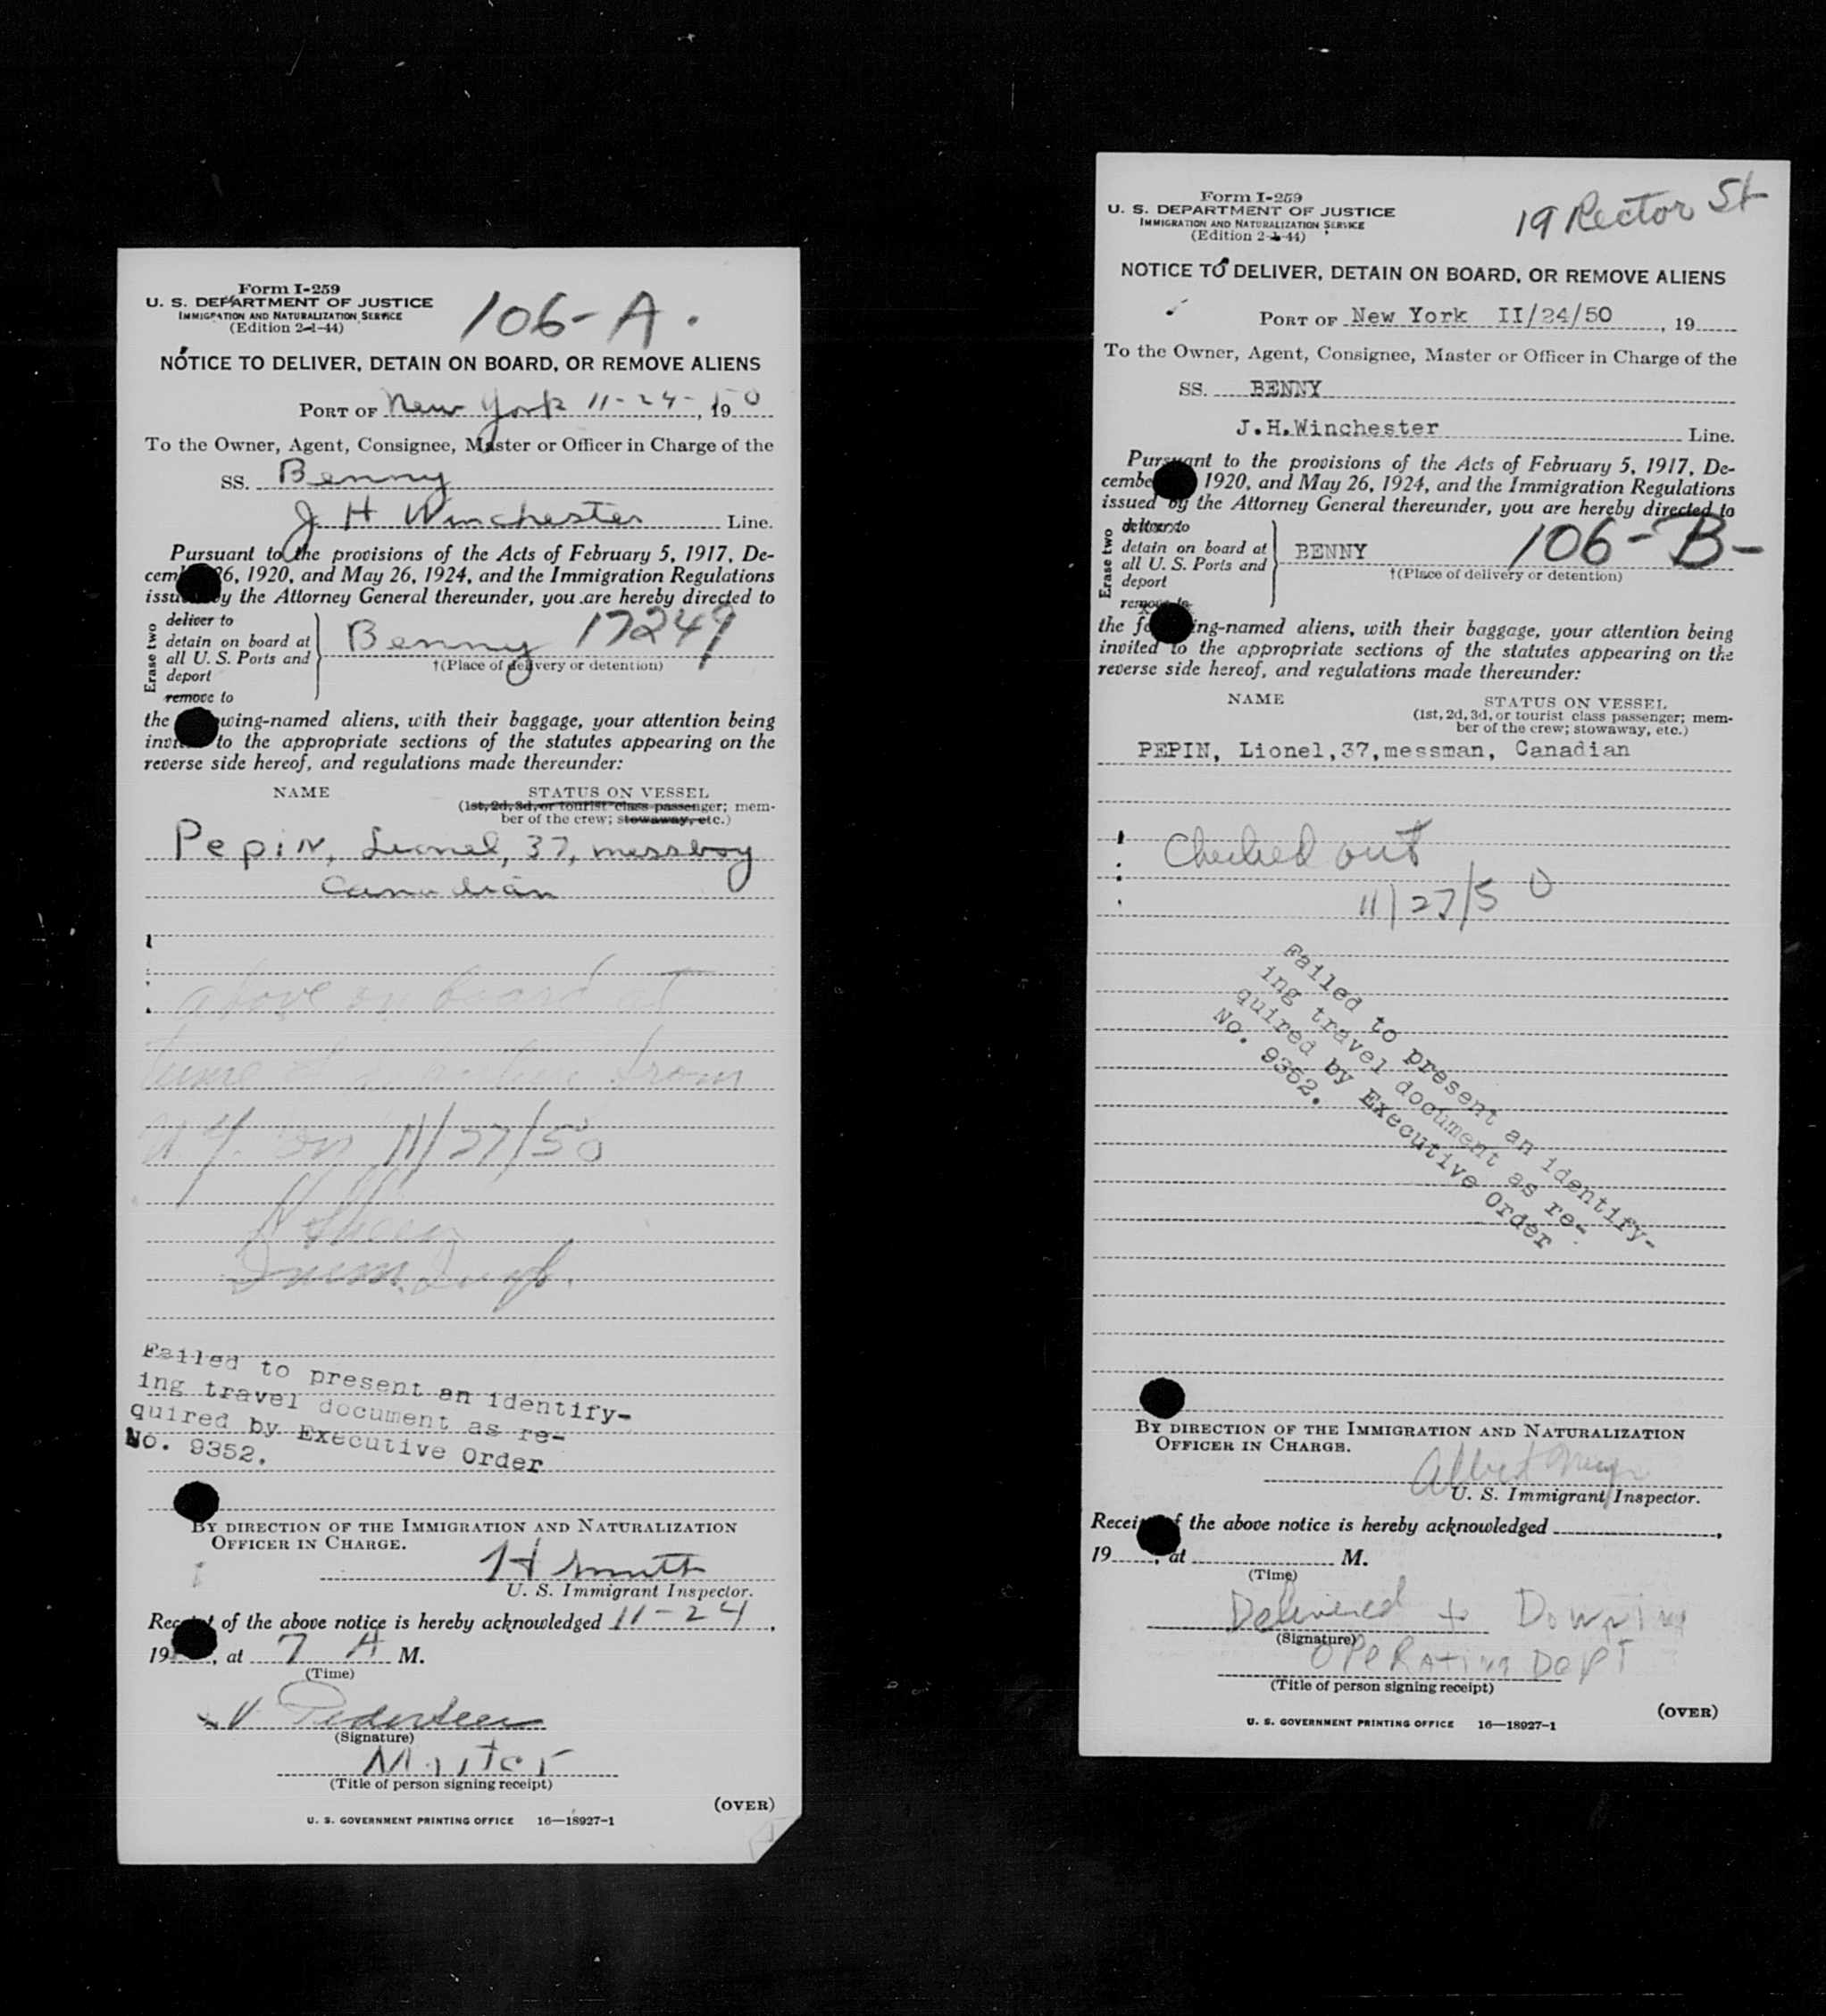 Form I-259
U. S. DEPARTMENT OF JUSTICE
IMMIGRATION AND NATURALIZATION SERVICE
(Edition 2-1-44)
106-A.
NOTICE TO DELIVER, DETAIN ON BOARD, OR REMOVE ALIENS
PORT OF New York 11-24-, 1950
To the Owner, Agent, Consignee, Master or Officer in Charge of the
SS. Benny
J H Winchester Line.
Pursuant to the provisions of the Acts of February 5, 1917, De-
cem 26, 1920, and May 26, 1924, and the Immigration Regulations
issu y the Attorney General thereunder, you are hereby directed to
Erase two
deliver to
detain on board at
all U. S. Ports and
deport
remove to
Benny 17249
†(Place of delivery or detention)
the wing-named aliens, with their baggage, your attention being
invi to the appropriate sections of the statutes appearing on the
reverse side hereof, and regulations made thereunder:
NAME STATUS ON VESSEL
(1st, 2d, 3d, or tourist class passenger; mem-
ber of the crew; stowaway, etc.)
Pepin, Lionel, 37, messboy
Canadian
above on board at
time of from
N Y. on 11/27/50
Imm. Insp.
Failed to present an identify-
ing travel document as re-
quired by Executive Order
No. 9352.
BY DIRECTION OF THE IMMIGRATION AND NATURALIZATION
OFFICER IN CHARGE.
H Smith
U. S. Immigrant Inspector.
Rec t of the above notice is hereby acknowledged 11-24,
19 , at 7 A M.
(Time)
V Pedersen
(Signature)
Master
(Title of person signing receipt)
(OVER)
U. S. GOVERNMENT PRINTING OFFICE 16—18927-1
Form I-259
U. S. DEPARTMENT OF JUSTICE
IMMIGRATION AND NATURALIZATION SERVICE
(Edition 2-1-44)
19 Rector St
NOTICE TO DELIVER, DETAIN ON BOARD, OR REMOVE ALIENS
PORT OF New York II/24/50, 19
To the Owner, Agent, Consignee, Master or Officer in Charge of the
SS. BENNY
J.H.Winchester Line.
Pursuant to the provisions of the Acts of February 5, 1917, De-
cembe 1920, and May 26, 1924, and the Immigration Regulations
issued by the Attorney General thereunder, you are hereby directed to
Erase two
deliver to
detain on board at
all U. S. Ports and
deport
remove to
BENNY 106-B-
†(Place of delivery or detention)
the fo ing-named aliens, with their baggage, your attention being
invited to the appropriate sections of the statutes appearing on the
reverse side hereof, and regulations made thereunder:
NAME STATUS ON VESSEL
(1st, 2d, 3d, or tourist class passenger; mem-
ber of the crew; stowaway, etc.)
PEPIN, Lionel,37,messman, Canadian
Checked out
11/27/50
Failed to present an identify-
ing travel document as re-
quired by Executive Order
No. 9352.
BY DIRECTION OF THE IMMIGRATION AND NATURALIZATION
OFFICER IN CHARGE.
Albert
U. S. Immigrant Inspector.
Recei f the above notice is hereby acknowledged ,
19 , at M.
(Time)
Delivered to Downing
(Signature)
OPERATING DEPT
(Title of person signing receipt)
(OVER)
U. S. GOVERNMENT PRINTING OFFICE 16—18927-1